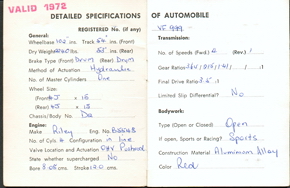 VALID 1972
DETAILED SPECIFICATIONS OF AUTOMOBILE
REGISTERED No. (if any)
General:
Wheelbase ins. Track 54" ins. (Front)
Dry Weight lbs. ins. (Rear)
Brake Type (Front) Drum (Rear) Drum
Method of Actuation Hydraulic
No. of Master Cylinders One
Wheel Size:
(Front) x 15
(Rear) x 15
Chassis/Body No.
Engine:
Make Riley Eng. No.
No. of Cyls 4 Configuration in line
Valve Location and Actuation OHV Pushrod
State whether supercharged No
Bore cms. Stroke cms.
Transmission:
No. of Speeds (Fwd.) (Rev.)
Gear Ratios
Final Drive Ratio :1
Limited Slip Differential? No
Bodywork:
Type (Open or Closed) Open
If open, Sports or Racing? Sports
Construction Material Aluminium Alloy
Color Red